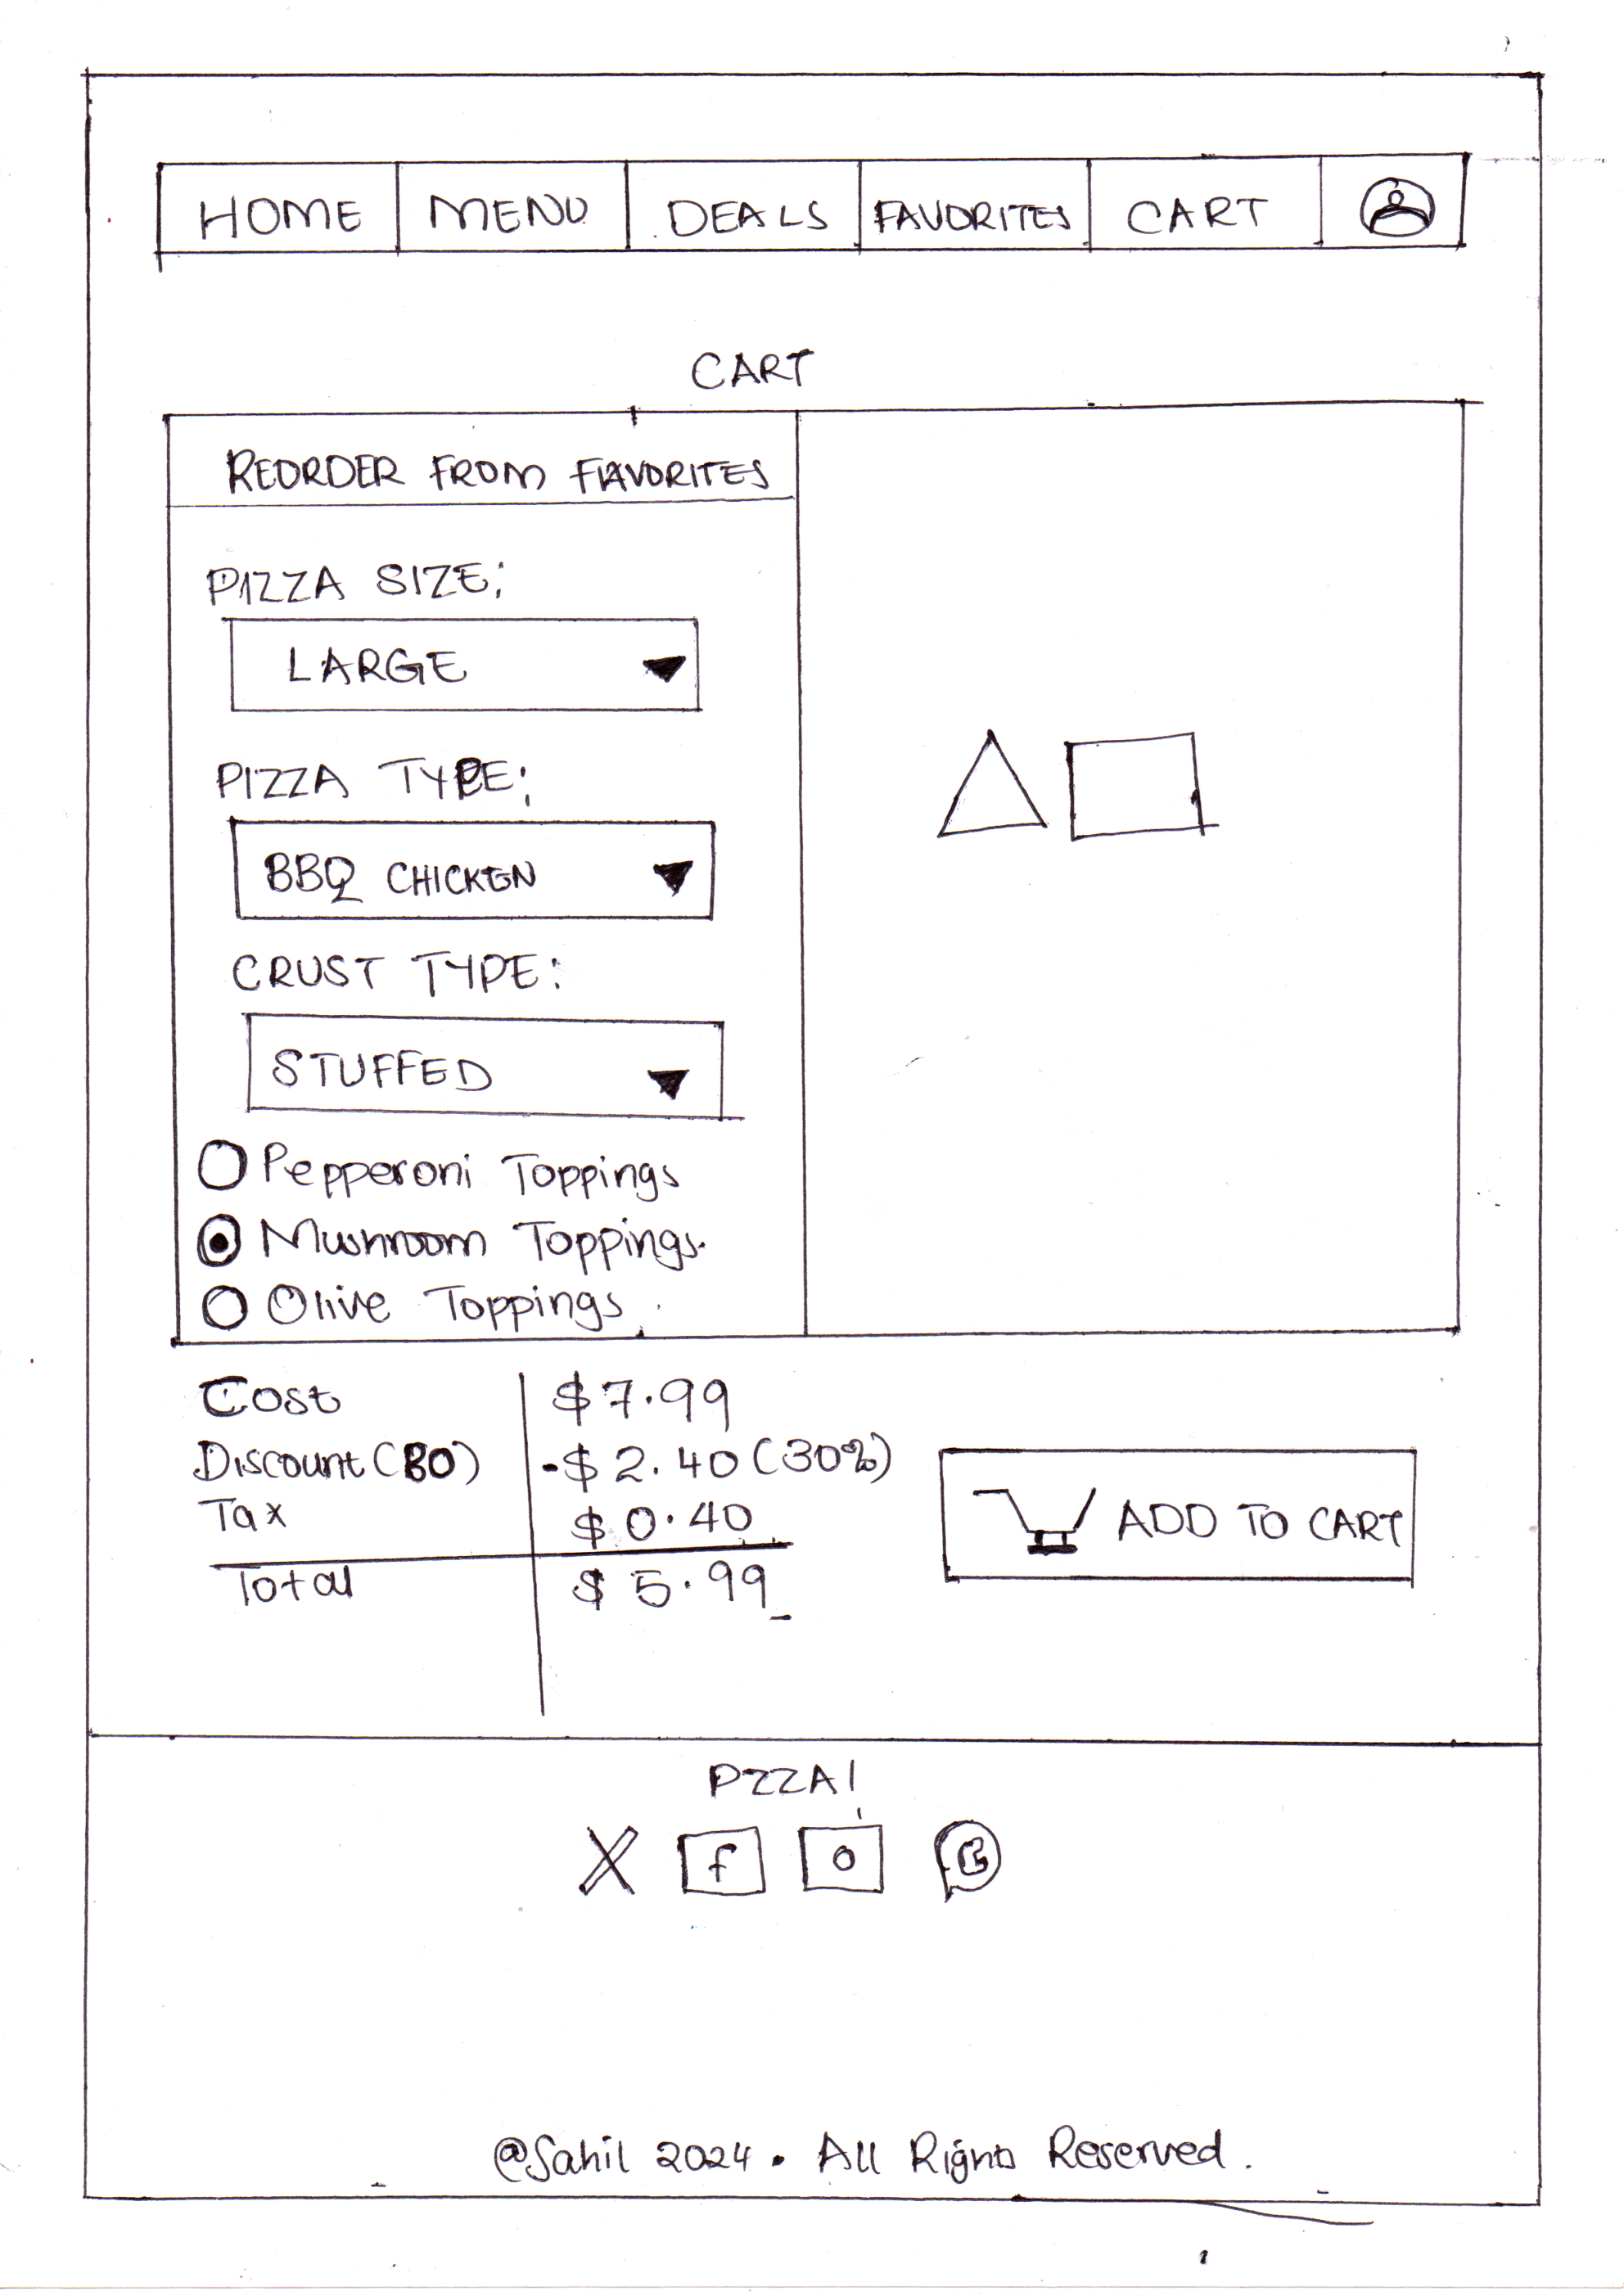 HOME MENU DEALS FAVORITES CART
CART
REORDER FROM FAVORITES
PIZZA SIZE:
LARGE
PIZZA TYPE:
BBQ CHICKEN
CRUST TYPE:
STUFFED
Pepperoni Toppings
Mushroom Toppings.
Olive Toppings.
Cost $7.99
Discount (80) -$2.40 (30%)
Tax $0.40
Total $5.99
ADD TO CART
PZZA!
X f
@Sahil 2024. All Rights Reserved.